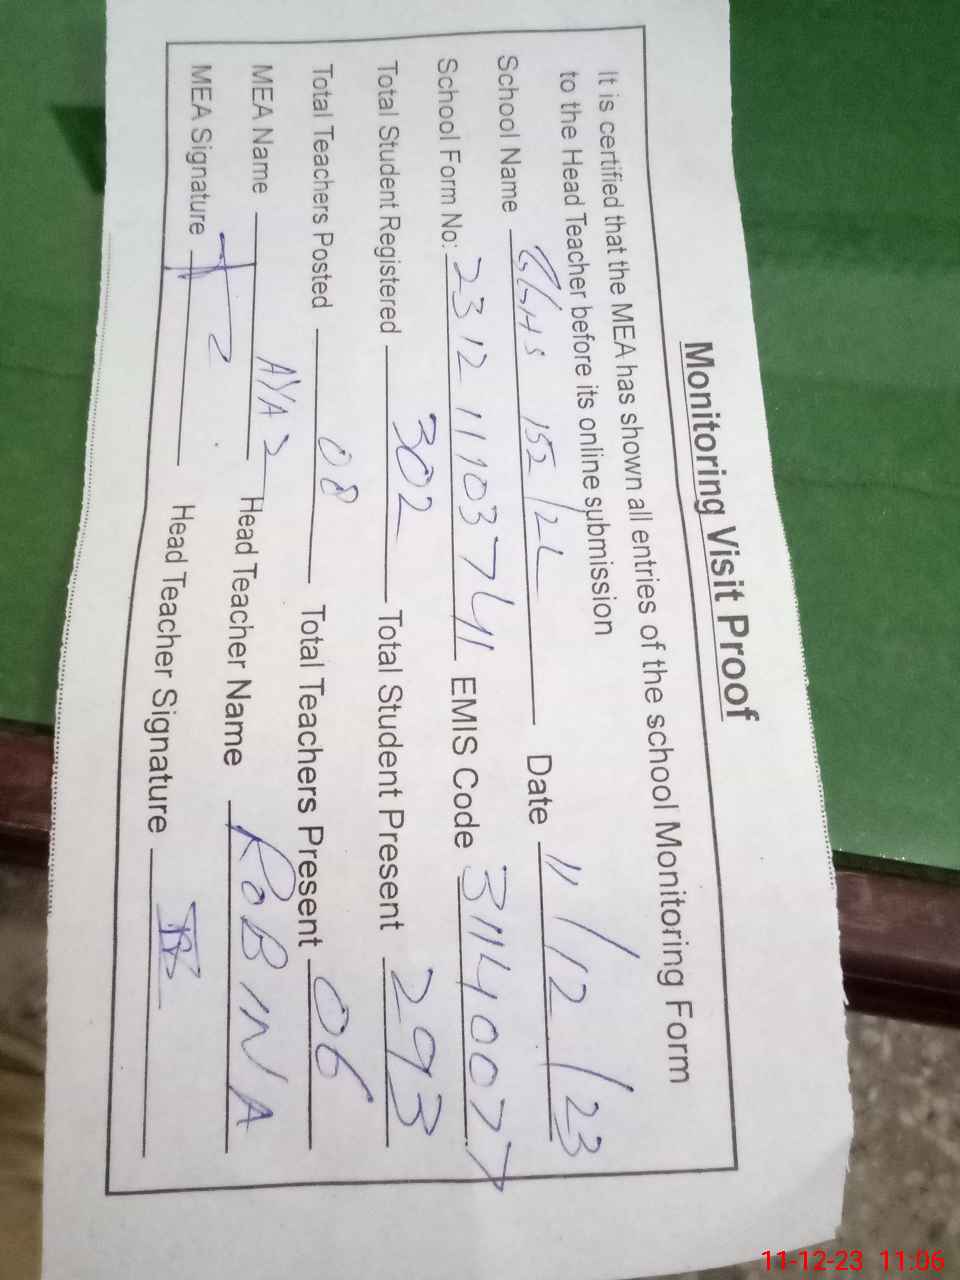 Monitoring Visit Proof
It is certified that the MEA has shown all entries of the school Monitoring Form
to the Head Teacher before its online submission
School Name GGHS 152/2L Date 11/12/23
School Form No: 2312 1110374 EMIS Code 31140077
Total Student Registered 302 Total Student Present 293
Total Teachers Posted 08 Total Teachers Present 06
MEA Name AYAZ Head Teacher Name ROBINA
MEA Signature Head Teacher Signature
11-12-23 11:06